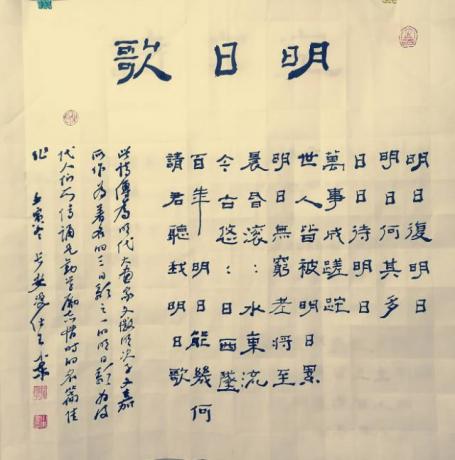 明日歌
明日復明日
明日何其多
日日待明日
萬事成蹉跎
世人皆被明日累
明日無窮老將至
晨昏滾:水東流
今古悠:日西墜
百年明日能幾何
請君聽我明日歌
此詩傳為明代大畫家文徵明次子文嘉
所作為著名的三日歌之一的明日歌為後
代人們所傳誦是勸學勵志惜時的名篇佳
作 壬寅冬